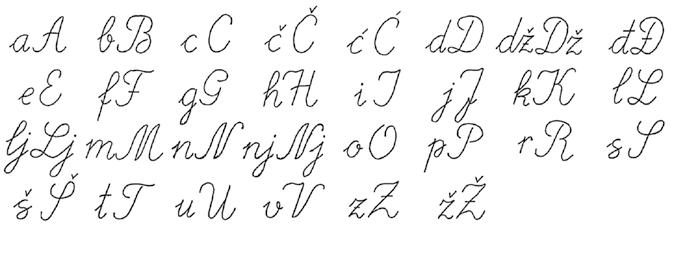 aA bB cC čČ ćĆ dD džDž đĐ
eE fF gG hH iI jJ kK lL
ljLj mM nN njNj oO pP rR sS
šŠ tT uU vV zZ žŽ